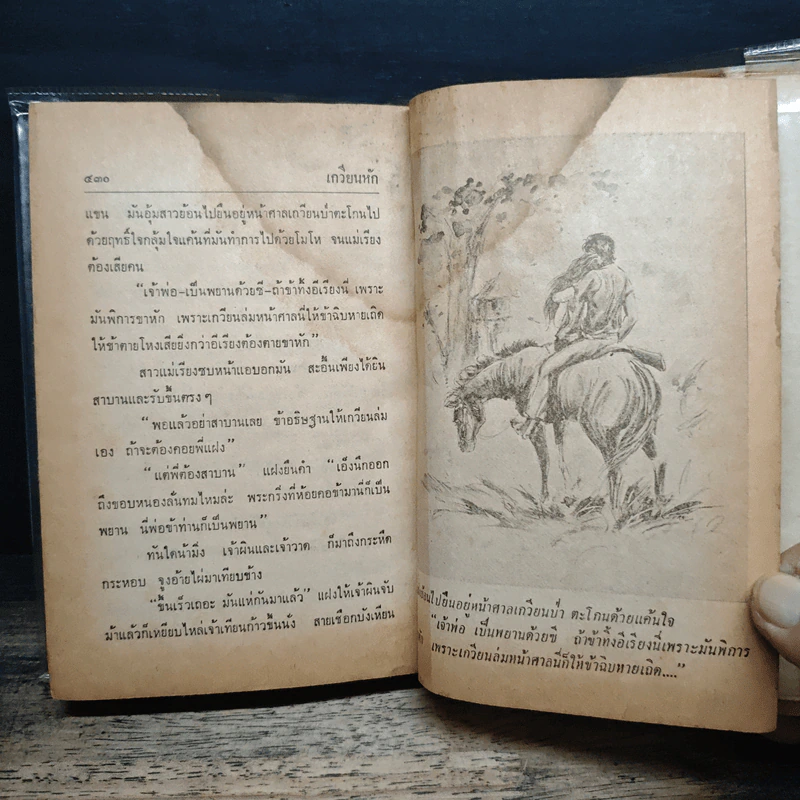 ๕๓๐ เกวียนหัก
แขน มันอุ้มสาวย้อนไปยืนอยู่หน้าศาลเกวียนบ๋าตะโกนไป
ด้วยฤทธิ์ใจกลุ้มใจแค้นที่มันทำการไปด้วยโมโห จนแม่เรียง
ต้องเสียคน
“เจ้าพ่อ-เป็นพยานด้วยซี-ถ้าข้าทิ้งอีเรียงนี่ เพราะ
มันพิการขาหัก เพราะเกวียนล่มหน้าศาลนี่ให้ข้าฉิบหายเถิด
ให้ข้าตายโหงเสียยิ่งกว่าอีเรียงต้องตายขาหัก”
สาวแม่เรียงซบหน้าแอบอกมัน สะอื้นเพียงได้ยิน
สาบานและรับขึ้นตรงๆ
“พอแล้วอย่าสาบานเลย ข้าอธิษฐานให้เกวียนล่ม
เอง ถ้าจะต้องคอยพี่แฝง”
“แต่พี่ต้องสาบาน” แฝงยืนคำ “เอ็งนึกออก
ถึงขอบหนองลั่นทมไหมล่ะ พระกริ่งที่ห้อยคอข้ามานี่ก็เป็น
พยาน นี่พ่อข้าท่านก็เป็นพยาน”
ทันใดน้ามิ่ง เจ้าผินและเจ้าวาด ก็มาถึงกระหืด
กระหอบ จูงอ้ายไผ่มาเทียบข้าง
“ขึ้นเร็วเถอะ มันแห่กันมาแล้ว” แฝงให้เจ้าผินจับ
ม้าแล้วก็เหยียบไหล่เจ้าเทียนก้าวขึ้นนั่ง สายเชือกบังเหียน
ย้อนไปยืนอยู่หน้าศาลเกวียนบ๋า ตะโกนด้วยแค้นใจ
“เจ้าพ่อ เป็นพยานด้วยซี ถ้าข้าทิ้งอีเรียงนี่เพราะมันพิการ
เพราะเกวียนล่มหน้าศาลนี่ก็ให้ข้าฉิบหายเถิด....”